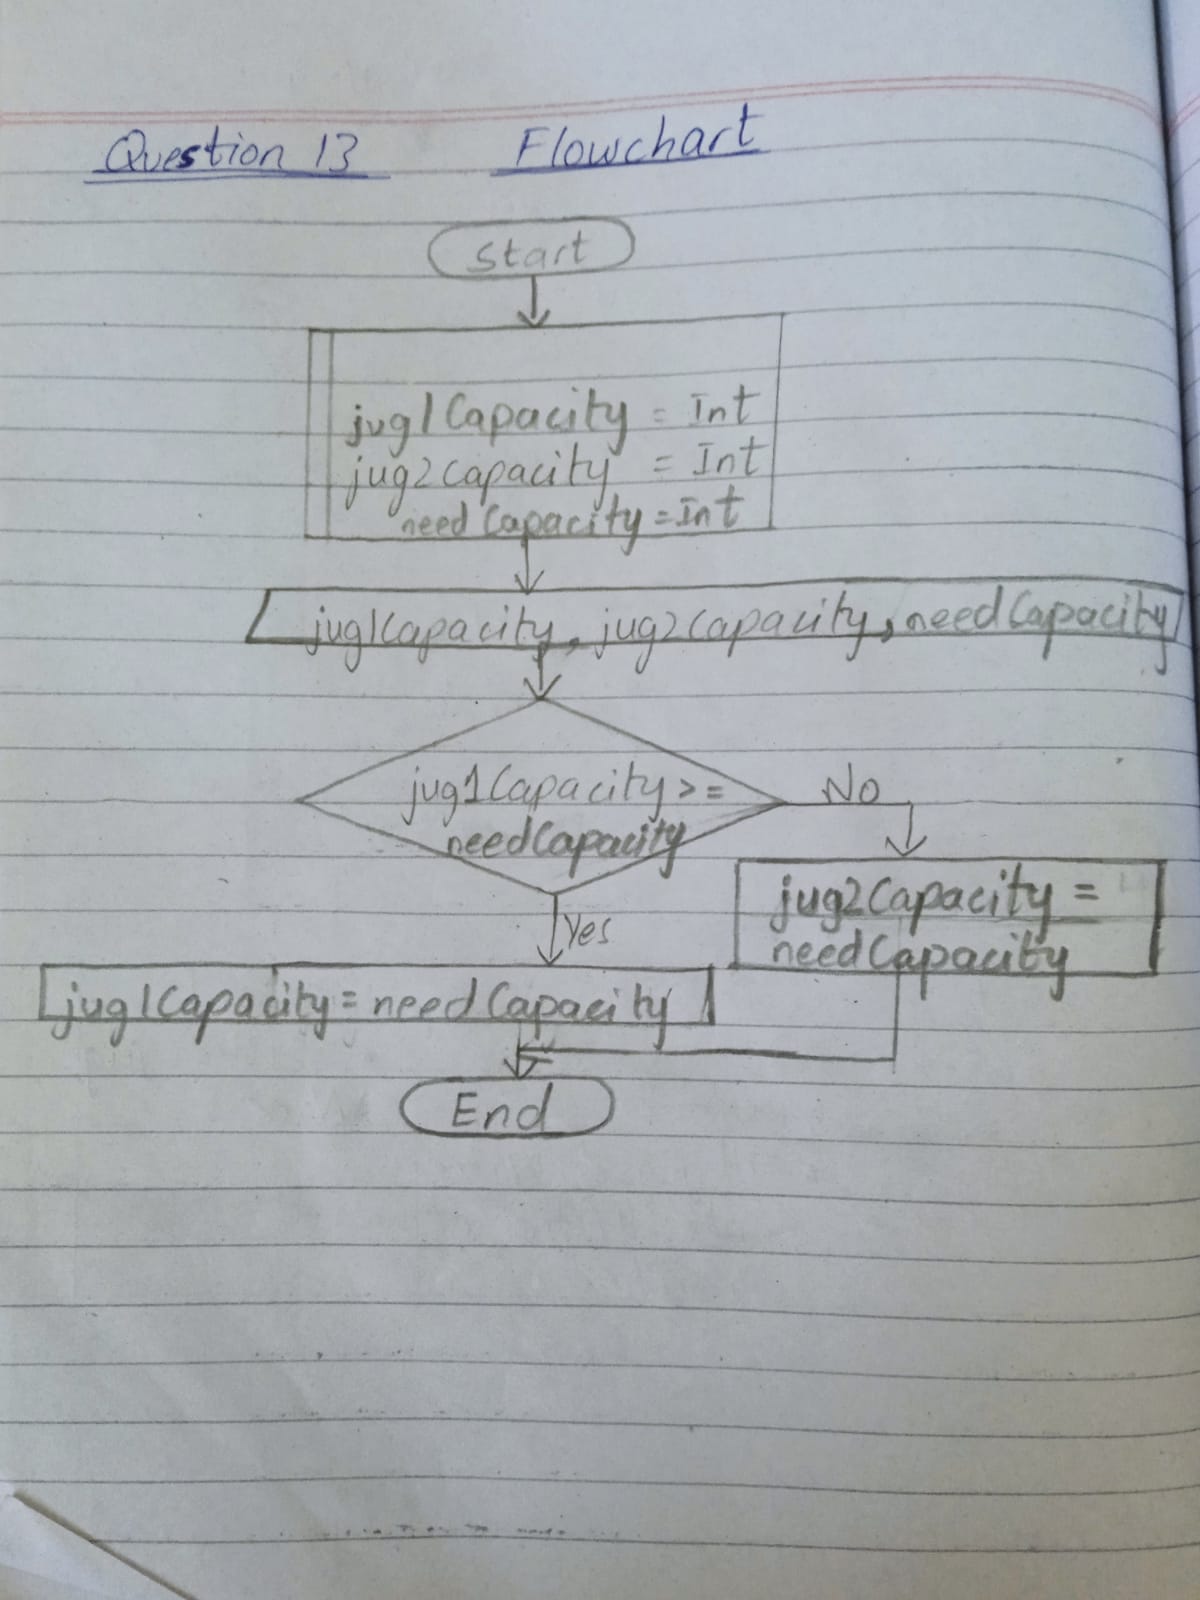 Question 13 Flowchart
Start
jug1Capacity = Int
jug2Capacity = Int
needCapacity = Int
jug1Capacity, jug2Capacity, needCapacity
jug1Capacity >=
needCapacity
No
jug2Capacity =
needCapacity
Yes
jug1Capacity = needCapacity
End